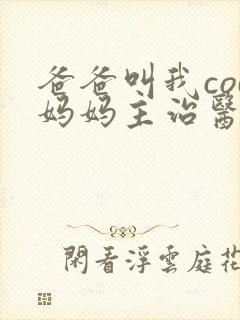 爸爸叫我co
妈妈主治醫
閑看浮雲庭花